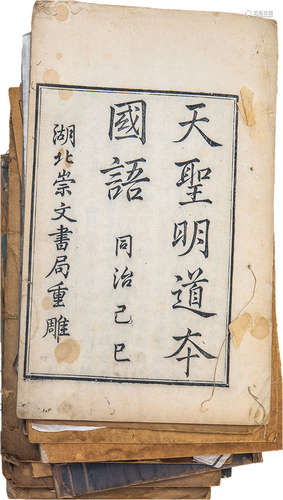 天聖明道本
國語 同治己巳
湖北崇文書局重雕